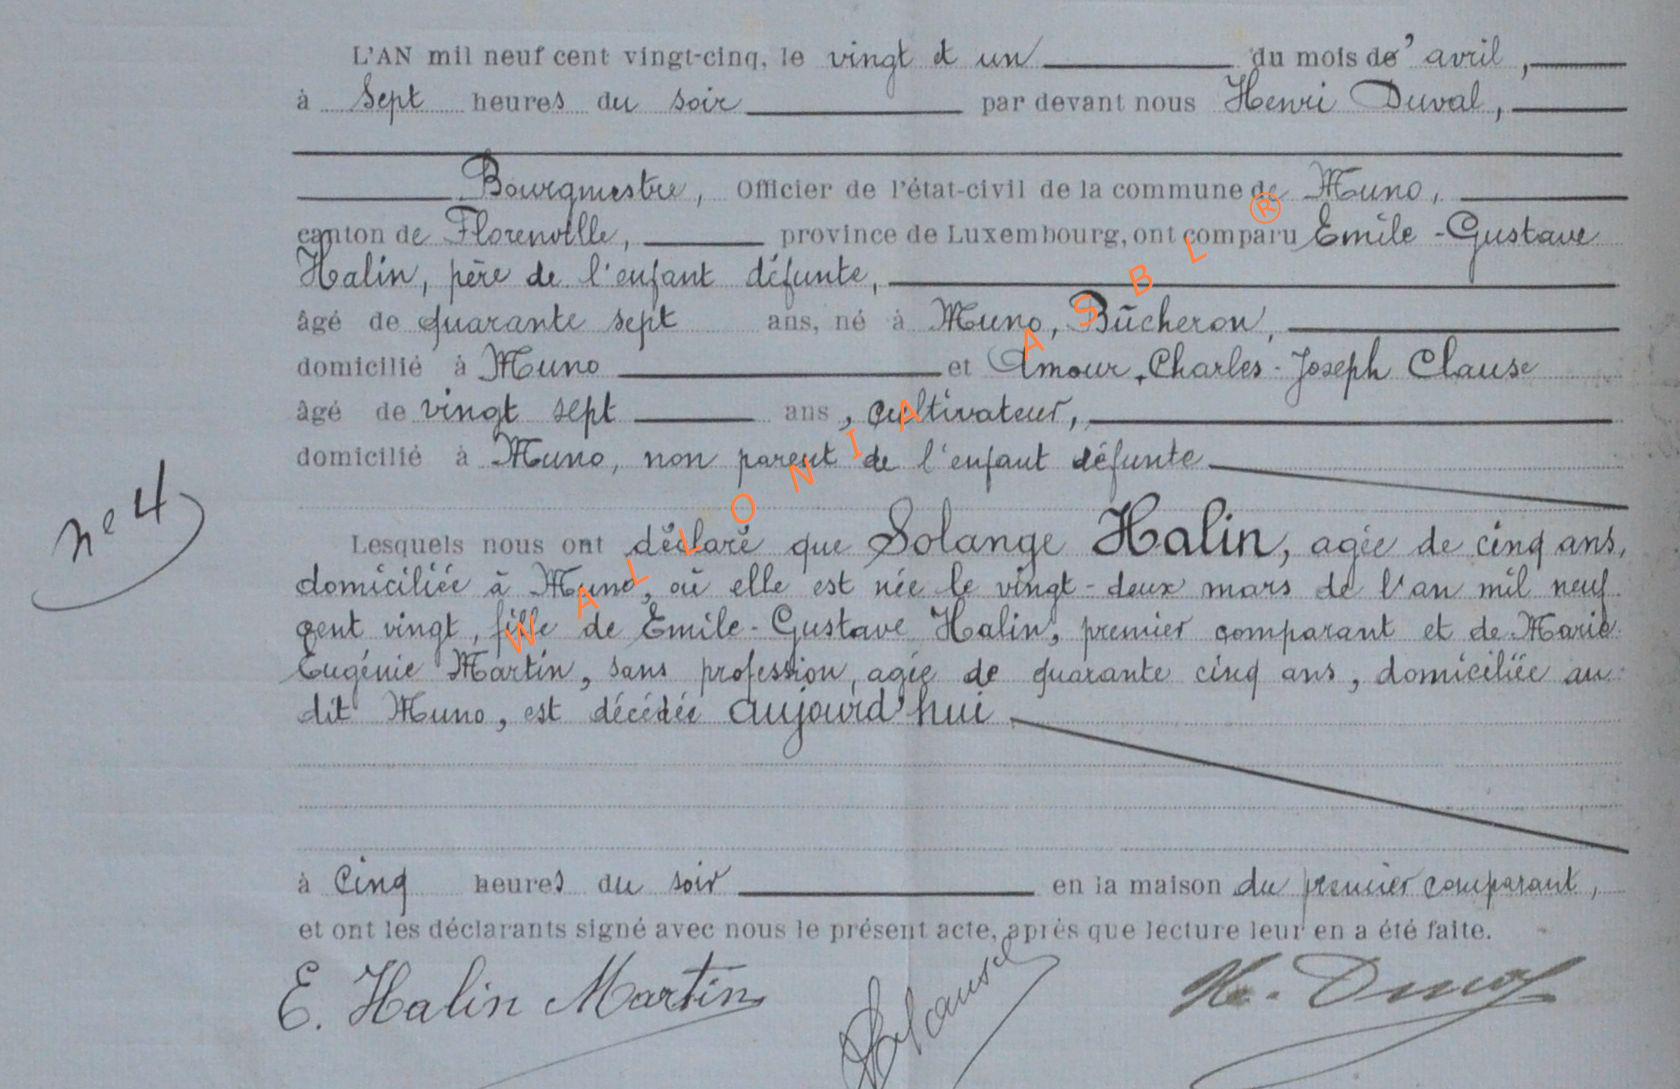 L'AN mil neuf cent vingt-cinq, le vingt et un du mois de' avril,
à Sept heures du soir par devant nous Henri Duval,
Bourgmestre, Officier de l'état-civil de la commune de Muno,
canton de Florenville, province de Luxembourg, ont comparu Emile-Gustave
Halin, père de l'enfant défunte,
âgé de quarante sept ans, né à Muno, Bûcheron,
domicilié à Muno et Amour, Charles-Joseph Clause
âgé de vingt sept ans, cultivateur,
domicilié à Muno, non parent de l'enfant défunte
nº 4
Lesquels nous ont déclaré que Solange Halin, agée de cinq ans,
domiciliée à Muno, où elle est née le vingt-deux mars de l'an mil neuf
cent vingt, fille de Emile-Gustave Halin, premier comparant et de Marie
Eugénie Martin, sans profession, agée de quarante cinq ans, domiciliée au
dit Muno, est décédée aujourd'hui
à Cinq heures du soir en la maison du premier comparant,
et ont les déclarants signé avec nous le présent acte, après que lecture leur en a été faite.
E. Halin Martin
Clause
H. Duval
WALLONIA ASBL ®